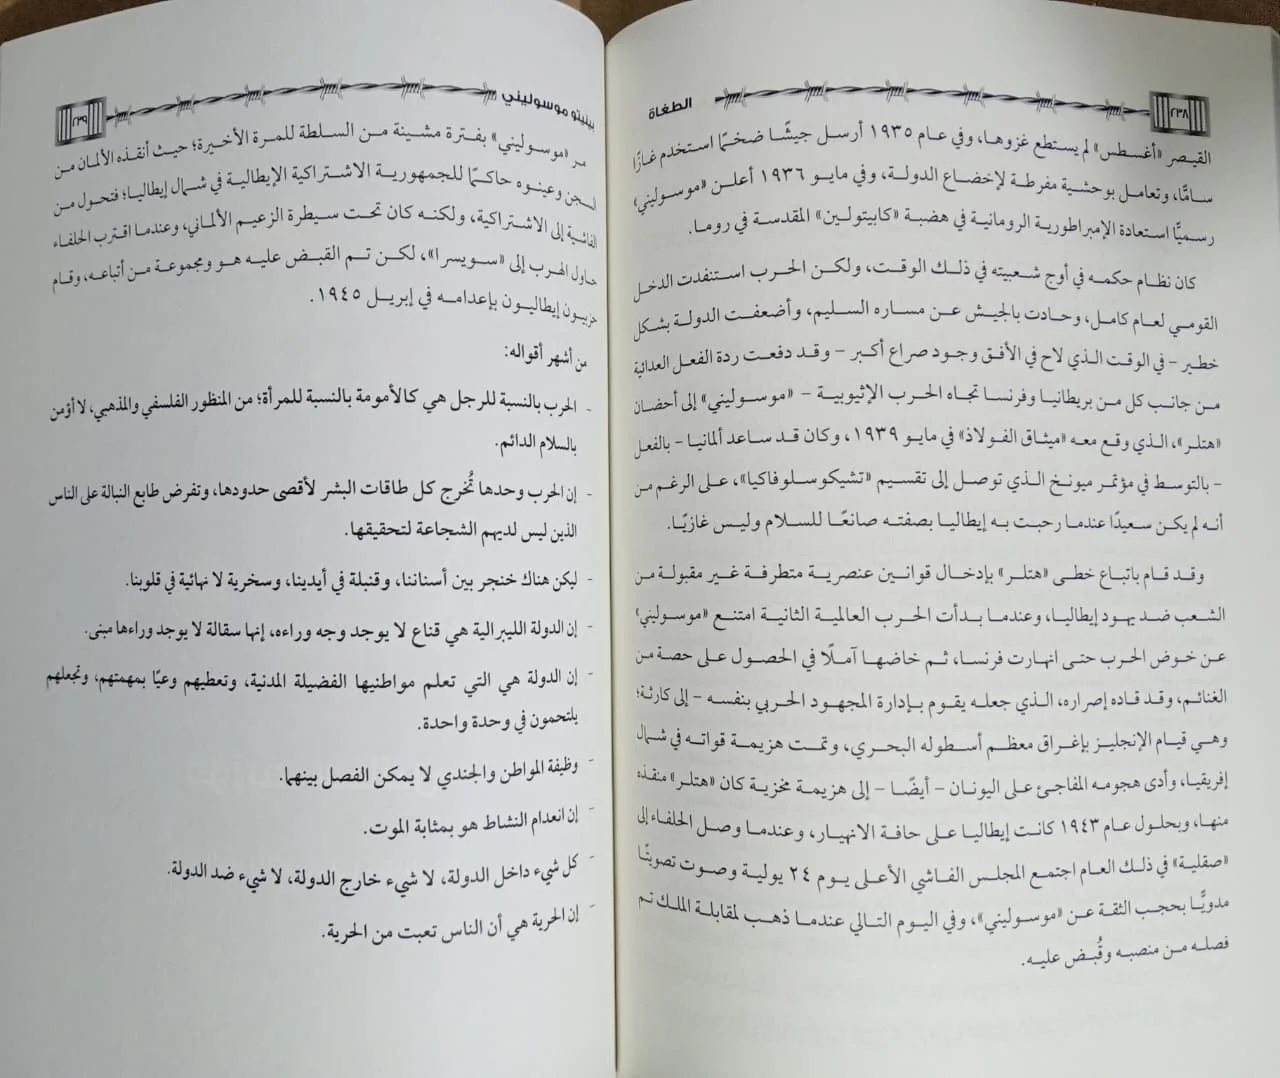 ٢٣٨
الطغاة
القيصر «أغسطس» لم يستطع غزوها، وفي عام ١٩٣٥ أرسل جيشًا ضخمًا استخدم غازًا
سامًّا، وتعامل بوحشية مفرطة لإخضاع الدولة، وفي مايو ١٩٣٦ أعلن «موسوليني»
رسميًّا استعادة الإمبراطورية الرومانية في هضبة «كابيتولين» المقدسة في روما.
كان نظام حكمه في أوج شعبيته في ذلك الوقت، ولكن الحرب استنفدت الدخل
القومي لعام كامل، وحادت بالجيش عن مساره السليم، وأضعفت الدولة بشكل
خطير – في الوقت الذي لاح في الأفق وجود صراع أكبر – وقد دفعت ردة الفعل العدائية
من جانب كل من بريطانيا وفرنسا تجاه الحرب الإثيوبية – «موسوليني» إلى أحضان
«هتلر»، الذي وقع معه «ميثاق الفولاذ» في مايو ١٩٣٩، وكان قد ساعد ألمانيا – بالفعل
– بالتوسط في مؤتمر ميونخ الذي توصل إلى تقسيم «تشيكوسلوفاكيا»، على الرغم من
أنه لم يكن سعيدًا عندما رحبت به إيطاليا بصفته صانعًا للسلام وليس غازيًا.
وقد قام باتباع خطى «هتلر» بإدخال قوانين عنصرية متطرفة غير مقبولة من
الشعب ضد يهود إيطاليا، وعندما بدأت الحرب العالمية الثانية امتنع «موسوليني»
عن خوض الحرب حتى انهارت فرنسا، ثم خاضها آملًا في الحصول على حصة من
الغنائم، وقد قاده إصراره، الذي جعله يقوم بإدارة المجهود الحربي بنفسه – إلى كارثة؛
وهي قيام الإنجليز بإغراق معظم أسطوله البحري، وتمت هزيمة قواته في شمال
إفريقيا، وأدى هجومه المفاجئ على اليونان – أيضًا – إلى هزيمة مخزية كان «هتلر» منقذه
منها، وبحلول عام ١٩٤٣ كانت إيطاليا على حافة الانهيار، وعندما وصل الحلفاء إلى
«صقلية» في ذلك العام اجتمع المجلس الفاشي الأعلى يوم ٢٤ يولية وصوت تصويتًا
مدويًّا بحجب الثقة عن «موسوليني»، وفي اليوم التالي عندما ذهب لمقابلة الملك تم
فصله من منصبه وقُبض عليه.
بينيتو موسوليني
٢٣٩
مر «موسوليني» بفترة مشينة من السلطة للمرة الأخيرة؛ حيث أنقذه الألمان من
السجن وعينوه حاكمًا للجمهورية الاشتراكية الإيطالية في شمال إيطاليا؛ فتحول من
الفاشية إلى الاشتراكية، ولكنه كان تحت سيطرة الزعيم الألماني، وعندما اقترب الحلفاء
حاول الهرب إلى «سويسرا»، لكن تم القبض عليه هو ومجموعة من أتباعه، وقام
حزبيون إيطاليون بإعدامه في إبريل ١٩٤٥.
من أشهر أقواله:
- الحرب بالنسبة للرجل هي كالأمومة بالنسبة للمرأة؛ من المنظور الفلسفي والمذهبي، لا أؤمن
بالسلام الدائم.
- إن الحرب وحدها تُخرج كل طاقات البشر لأقصى حدودها، وتفرض طابع النبالة على الناس
الذين ليس لديهم الشجاعة لتحقيقها.
- ليكن هناك خنجر بين أسناننا، وقنبلة في أيدينا، وسخرية لا نهائية في قلوبنا.
- إن الدولة الليبرالية هي قناع لا يوجد وجه وراءه، إنها سقالة لا يوجد وراءها مبنى.
- إن الدولة هي التي تعلم مواطنيها الفضيلة المدنية، وتعطيهم وعيًا بمهمتهم، وتجعلهم
يلتحمون في وحدة واحدة.
- وظيفة المواطن والجندي لا يمكن الفصل بينهما.
- إن انعدام النشاط هو بمثابة الموت.
- كل شيء داخل الدولة، لا شيء خارج الدولة، لا شيء ضد الدولة.
- إن الحرية هي أن الناس تعبت من الحرية.